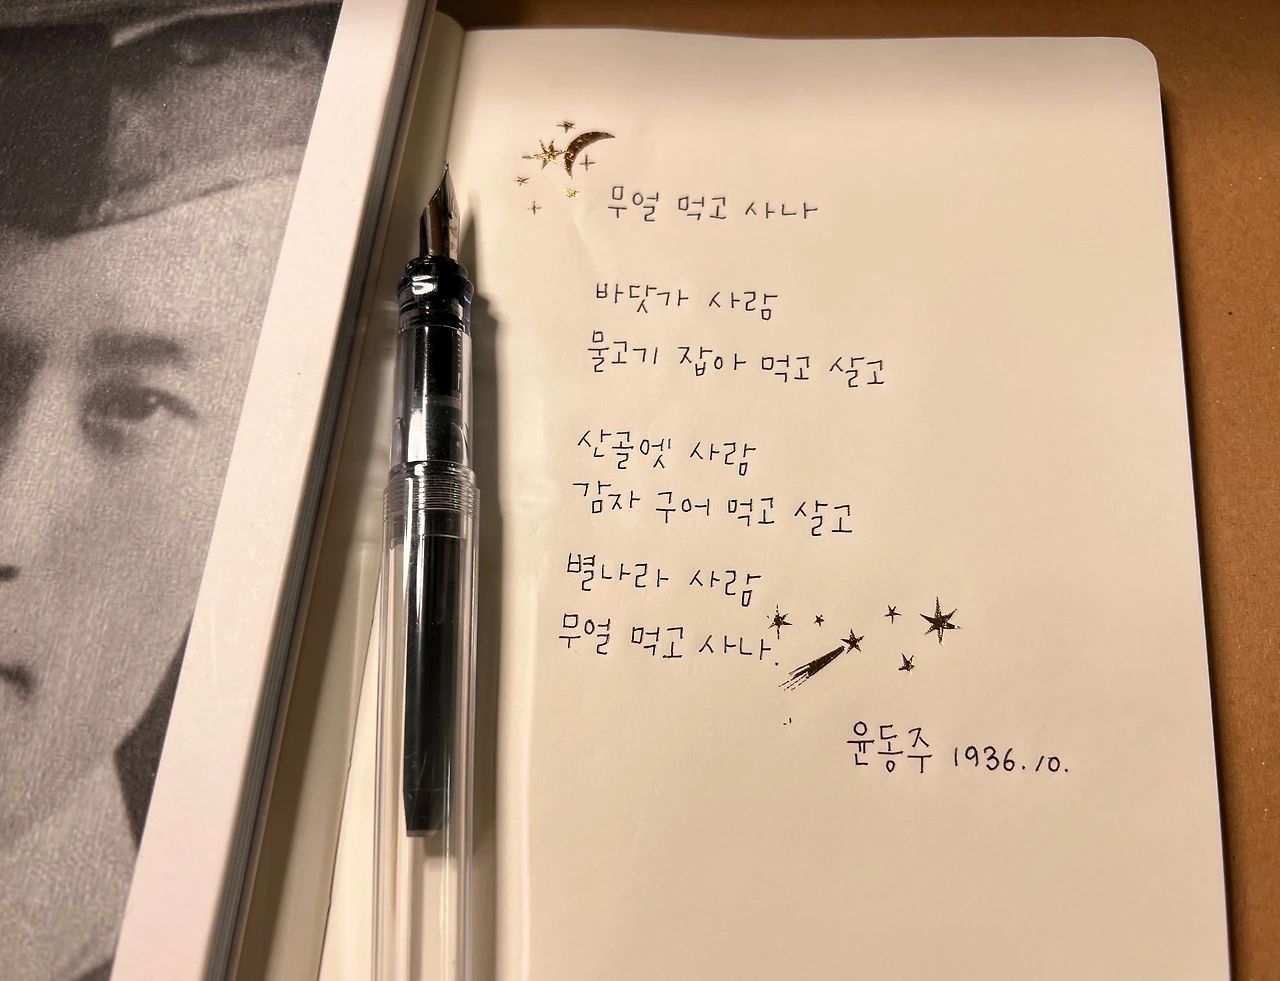 무얼 먹고 사나
바닷가 사람
물고기 잡아 먹고 살고
산골엣 사람
감자 구어 먹고 살고
별나라 사람
무얼 먹고 사나.
윤동주 1936.10.